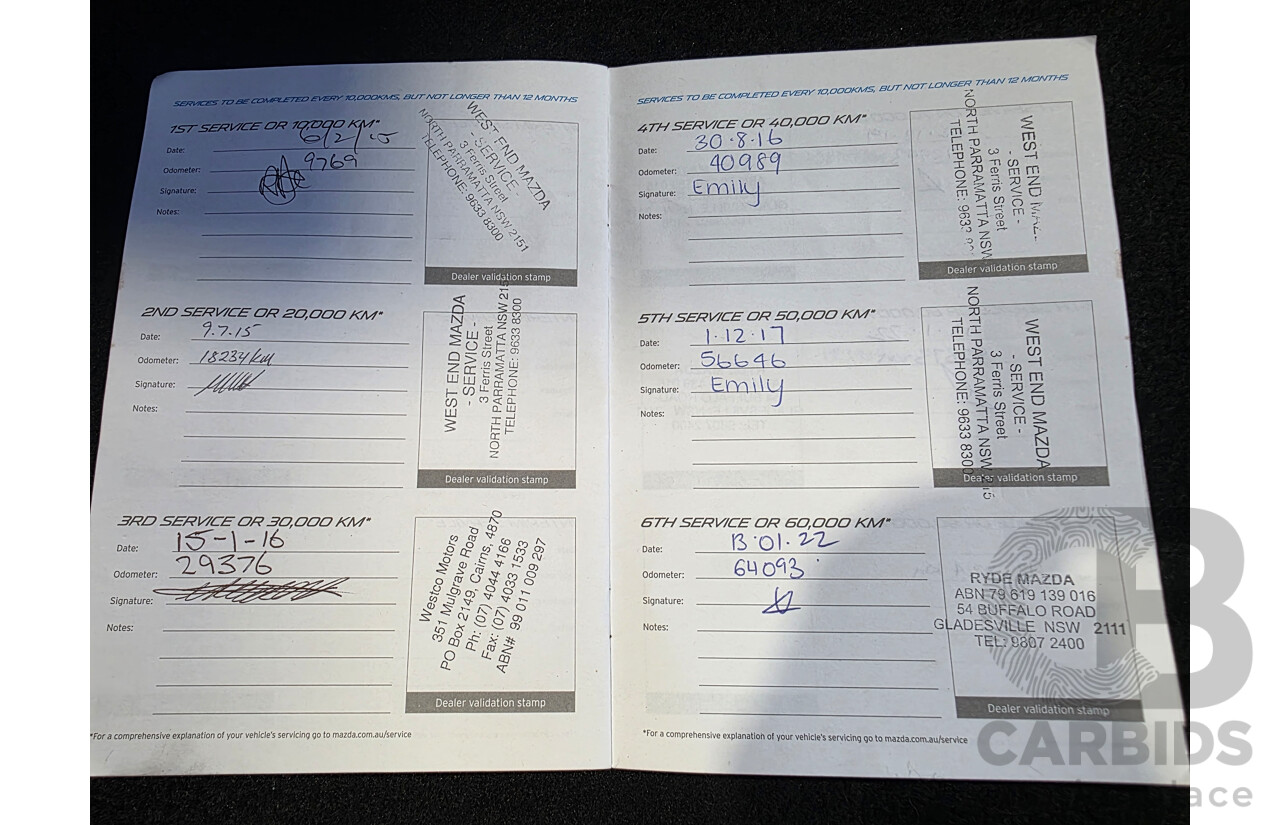 SERVICES TO BE COMPLETED EVERY 10,000KMS, BUT NOT LONGER THAN 12 MONTHS
1ST SERVICE OR 10,000 KM*
Date: 6/2/15
Odometer: 9769
Signature:
Notes:
WEST END MAZDA
- SERVICE -
3 Ferris Street
NORTH PARRAMATTA NSW 2151
TELEPHONE: 9633 8300
Dealer validation stamp
2ND SERVICE OR 20,000 KM*
Date: 9.7.15
Odometer: 18234 km
Signature:
Notes:
WEST END MAZDA
- SERVICE -
3 Ferris Street
NORTH PARRAMATTA NSW 215
TELEPHONE: 9633 8300
Dealer validation stamp
3RD SERVICE OR 30,000 KM*
Date: 15-1-16
Odometer: 29376
Signature:
Notes:
Westco Motors
351 Mulgrave Road
PO Box 2149, Cairns, 4870
Ph: (07) 4044 4166
Fax: (07) 4033 1533
ABN# 99 011 009 297
Dealer validation stamp
*For a comprehensive explanation of your vehicle's servicing go to mazda.com.au/service
SERVICES TO BE COMPLETED EVERY 10,000KMS, BUT NOT LONGER THAN 12 MONTHS
4TH SERVICE OR 40,000 KM*
Date: 30.8.16
Odometer: 40989
Signature: Emily
Notes:
WEST END
- SERVICE -
3 Ferris Street
NORTH PARRAMATTA NSW
TELEPHONE: 9633
Dealer validation stamp
5TH SERVICE OR 50,000 KM*
Date: 1.12.17
Odometer: 56646
Signature: Emily
Notes:
WEST END MAZDA
- SERVICE -
3 Ferris Street
NORTH PARRAMATTA NSW
TELEPHONE: 9633 8300
Dealer validation stamp
6TH SERVICE OR 60,000 KM*
Date: 13.01.22
Odometer: 64093
Signature:
Notes:
RYDE MAZDA
ABN 79 619 139 016
54 BUFFALO ROAD
GLADESVILLE NSW 2111
TEL: 9807 2400
Dealer validation stamp
*For a comprehensive explanation of your vehicle's servicing go to mazda.com.au/service
CARBIDS